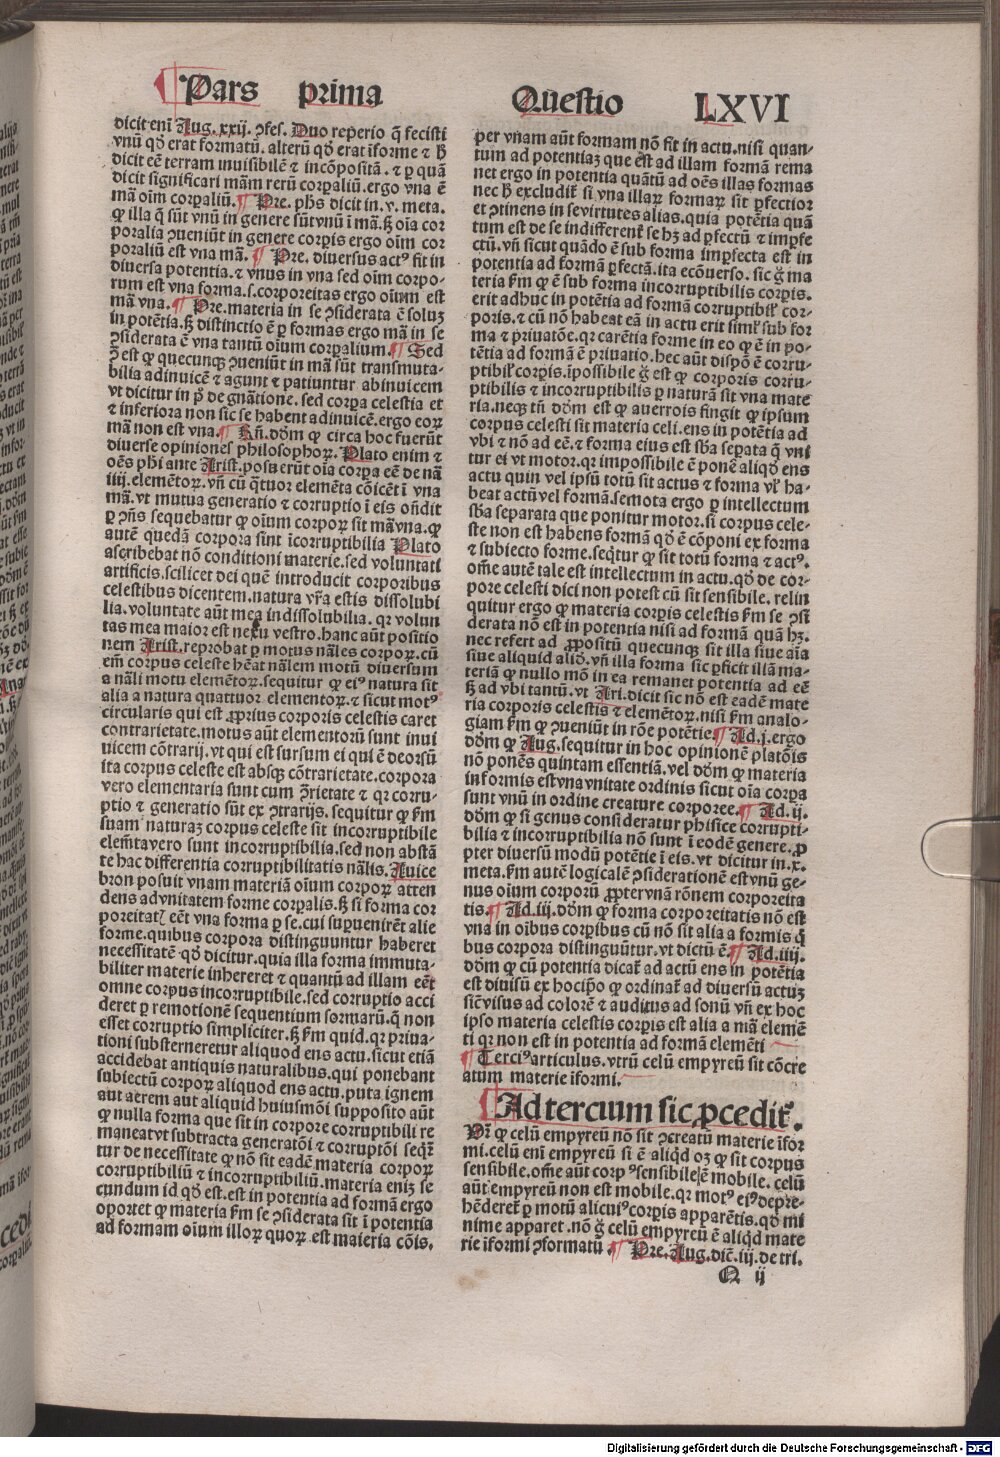 Pars prima Questio LXVI
dicit eni Aug. xxij. ꝯfes. Duo reperio q̄ fecisti
vnū qđ erat formatū. alterū qđ erat īforme ⁊ ħ
dicit eē terram inuisibilē ⁊ incōpositā. ⁊ ꝑ quā
dicit significari mām rerū corꝑaliū. ergo vna ē
mā oīm corꝑaliū. ¶ Pre. phs dicit in. v. meta.
ꝙ illa q̄ sūt vnū in genere sūt vnū ī mā. ꝫ oīa cor
poralia ꝯueniūt in genere corꝑis ergo oīm cor
poraliū est vna mā. ¶ Pre. diuersus actꝰ fit in
diuersa potentia. ⁊ vnus in vna sed oīm corpo-
rum est vna forma. s. corporeitas ergo oium est
mā vna. ¶ Pre. materia in se ꝯsiderata ē soluꝫ
in potētia. ꝫ distinctio ē ꝑ formas ergo mā in se
ꝯsiderata ē vna tantū oīum corꝑalium. ¶ Sed
ꝯ̄ est ꝙ quecunqꝫ ꝯueniūt in mā sūt transmuta-
bilia adinuicē ⁊ agunt ⁊ patiuntur abinuicem
vt dicitur in pͦ de gnātione. sed corꝑa celestia et
⁊ inferiora non sic se habent adinuicē. ergo eoꝝ
mā non est vna. ¶ Rñ. dōm ꝙ circa hoc fuerūt
diuerse opiniones philosophoꝝ. Plato enim ⁊
oēs phi ante Arist. posuerūt oīa corꝑa eē de nā
iiij. elemētoꝝ. vñ cū q̄tuor elemēta cōicēt ī vna
mā. vt mutua generatio ⁊ corruptio ī eis oñdit
ꝑ ꝯñs sequebatur ꝙ oīum corpoꝝ sit mā vna. ꝙ
autē quedā corpora sint īcorruptibilia Plato
ascribebat nō conditioni materie. sed voluntati
artificis. scilicet dei quē introducit corporibus
celestibus dicentem. natura vr̄a estis dissolubi
lia. voluntate aūt mea indissolubilia. qꝛ volun
tas mea maior est nexu vestro. hanc aūt positio
nem Arist. reprobat ꝑ motus nāles corpoꝝ. cū
em̄ corpus celeste hēat nālem motū diuersum
a nāli motu elemētoꝝ. sequitur ꝙ eiꝰ natura sit
alia a natura quattuor elementoꝝ. ⁊ sicut motꝰ
circularis qui est ꝓprius corporis celestis caret
contrarietate. motus aūt elementorū sunt inui
uicem cōtrarij. vt qui est sursum ei qui ē deorsū
ita corpus celeste est absqꝫ cōtrarietate. corpora
vero elementaria sunt cum ꝯ̄rietate ⁊ qꝛ corru-
ptio ⁊ generatio sūt ex ꝯtrarijs. sequitur ꝙ k̄m
suam naturaꝫ corpus celeste sit incorruptibile
elem̄ta vero sunt incorruptibilia. sed non abstā
te hac differentia corruptibilitatis nālis. Auice
bron posuit vnam materiā oīum corpoꝝ atten
dens ad vnitatem forme corꝑalis. ꝫ si forma cor
poreitatꝭ eēt vna forma ꝑ se. cui suꝑuenirēt alie
forme. quibus corpora distinguuntur haberet
necessitatē qđ dicitur. quia illa forma immuta-
biliter materie inhereret ⁊ quantū ad illam eēt
omne corpus incorruptibile. sed corruptio acci
deret ꝑ remotionē sequentium formarū. q̄ non
esset corruptio simpliciter. ꝫ k̄m quid. qꝛ priua-
tioni substerneretur aliquod ens actu. sicut etiā
accidebat antiquis naturalibus. qui ponebant
subiectū corpoꝝ aliquod ens actu. puta ignem
aut aerem aut aliquid huiusmōi supposito aūt
ꝙ nulla forma que sit in corpore corruptibili re
maneat vt subtracta generatōi ⁊ corruptōi seqꝛ̄
tur de necessitate ꝙ nō sit eadē materia corpoꝝ
corruptibiliū ⁊ incorruptibiliū. materia enīꝫ se
cundum id qđ est. est in potentia ad formā ergo
oportet ꝙ materia k̄m se ꝯsiderata sit ī potentia
ad formam oīum illoꝝ quoꝝ est maieria cōis.
per vnam aūt formam nō fit in actu. nisi quan-
tum ad potentiaꝫ que est ad illam formā rema
net ergo in potentia quātū ad oēs illas formas
nec ħ excludiť si vna illaꝝ formaꝝ sit ꝑfectior
et ꝯtinens in se virtutes alias. quia potētia quā
tum est de se indifferenť se hꝫ ad ꝑfectū ⁊ imꝑfe
ctū. vñ sicut quādo ē sub forma imꝑfecta est in
potentia ad formā ꝑfectā. ita ecōuerso. sic g̊ ma
teria k̄m ꝙ ē sub forma incorruptibilis corꝑis.
erit adhuc in potētia ad formā corruptibiľ cor-
poris. ⁊ cū nō habeat eā in actu erit simľ sub for
ma ⁊ priuatōe. qꝛ carētia forme in eo ꝙ ē in po-
tētia ad formā ē priuatio. hec aūt dispō ē corru-
ptibiľ corꝑis. īpossibile g̊ est ꝙ corporis corru-
ptibilis ⁊ incorruptibilis ꝑ naturā sit vna mate
ria. neqꝫ tñ dōm est ꝙ auerrois fingit ꝙ ipsum
corpus celesti sit materia celi. ens in potētia ad
vbi ⁊ nō ad eē. ⁊ forma eius est sba seꝑata q̄ vni
tur ei vt motor. qꝛ impossibile ē ponē aliqđ ens
actu quin vel ipsū totū sit actus ⁊ forma vľ ha-
beat actū vel formā. semota ergo ꝑ intellectum
sba separata que ponitur motor. si corpus cele-
ste non est habens formā qđ ē cōponi ex forma
⁊ subiecto forme. seq̄tur ꝙ sit totū forma ⁊ actꝰ.
om̄e autē tale est intellectum in actu. qđ de cor-
pore celesti dici non potest cū sit sensibile. relin
quitur ergo ꝙ materia corꝑis celestis k̄m se ꝯsi
derata nō est in potentia nisi ad formā quā hꝫ.
nec refert ad ꝓpositū quecunqꝫ sit illa siue aīa
siue aliquid aliđ. vñ illa forma sic ꝑficit illā ma-
teriā ꝙ nullo mō in ea remanet potentia ad eē
ꝫ ad vbi tantū. vt Ari. dicit sic nō est eadē mate
ria corporis celestis ⁊ elemētoꝝ. nisi k̄m analo-
giam k̄m ꝙ ꝯueniūt in rōe potētie. ¶ Ad. j. ergo
dōm ꝙ Aug. sequitur in hoc opinionē platōis
nō ponēs quintam essentiā. vel dōm ꝙ materia
informis est vna vnitate ordinis sicut oīa corꝑa
sunt vnū in ordine creature corporee. ¶ Ad. ij.
dōm ꝙ si genus consideratur phisice corrupti-
bilia ⁊ incorruptibilia nō sunt ī eodē genere. ꝓ
pter diuersū modū potētie ī eis. vt dicitur in. x.
meta. k̄m autē logicalē ꝯsiderationē est vnū ge-
nus oīum corporū ꝓpter vnā rōnem corporeita
tis. ¶ Ad. iij. dōm ꝙ forma corporeitatis nō est
vna in oībus corꝑibus cū nō sit alia a formis q̄
bus corpora distinguūtur. vt dictū ē. ¶ Ad. iiij.
dōm ꝙ cū potentia dicať ad actū ens in potētia
est diuisū ex hoc ipo ꝙ ordinať ad diuersū actuꝫ
sic̄ visus ad colorē ⁊ auditus ad sonū vñ ex hoc
ipso materia celestis corꝑis est alia a mā elemē
ti qꝛ non est in potentia ad formā elemēti
¶ Terciꝰ articulus. vtrū celū empyreū sit cōcre
atum materie īformi.
Ad tercium sic ꝓcediť.
Pꝛ ꝙ celū empyreū nō sit ꝯcreatū materie īfor
mi. celū eni empyreū si ē aliqđ oꝫ ꝙ sit corpus
sensibile. om̄e aūt corpꝰ sensibile ē mobile. celū
aūt empyreū non est mobile. qꝛ motꝰ eiꝰ depre-
hēdereť ꝑ motū alicuiꝰ corꝑis apparētis. qđ mi
nime apparet. nō g̊ celū empyreū ē aliqđ mate
rie īformi ꝯformatū. ¶ Pre. Aug. dic̄. iij. de tri.
Q ij
Digitalisierung gefördert durch die Deutsche Forschungsgemeinschaft - DFG